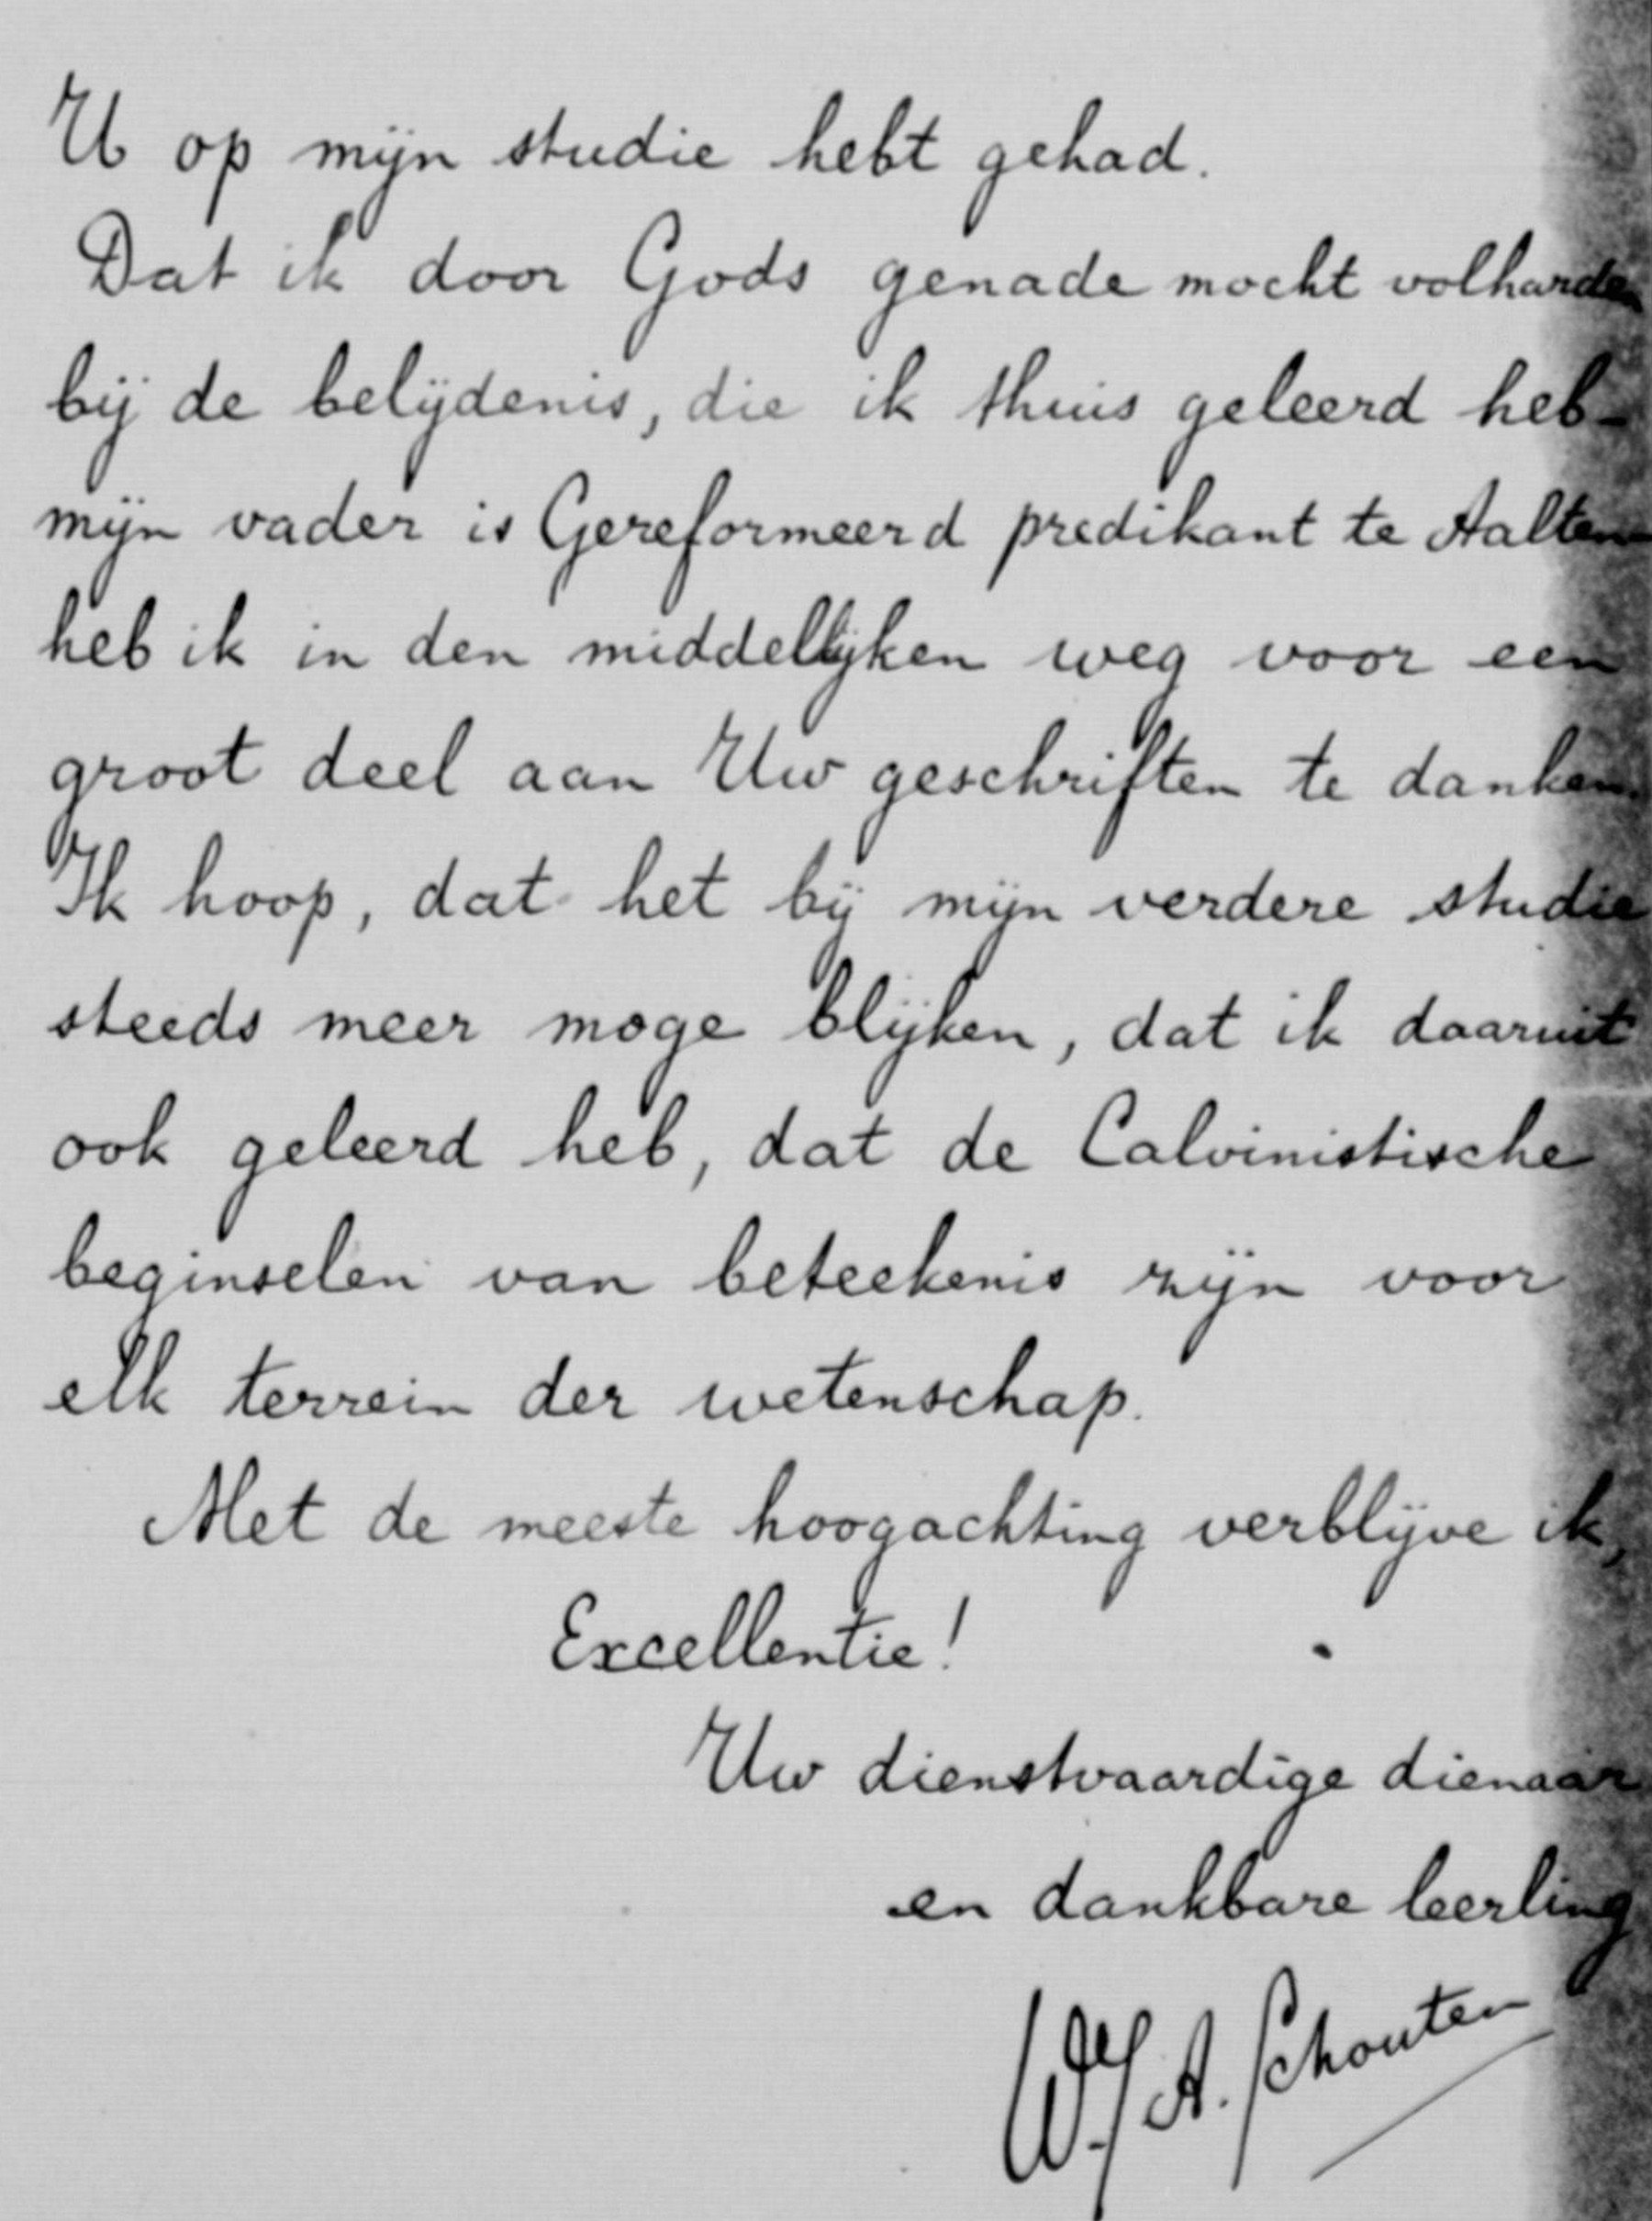 U op mijn studie hebt gehad.
Dat ik door Gods genade mocht volharden
bij de belijdenis, die ik thuis geleerd heb -
mijn vader is Gereformeerd predikant te Aalten -
heb ik in den middellijken weg voor een
groot deel aan Uw geschriften te danken.
Ik hoop, dat het bij mijn verdere studie
steeds meer moge blijken, dat ik daaruit
ook geleerd heb, dat de Calvinistische
beginselen van beteekenis zijn voor
elk terrein der wetenschap.
Met de meeste hoogachting verblijve ik,
Excellentie!
Uw dienstvaardige dienaar
en dankbare leerling
W.J.A. Schouten